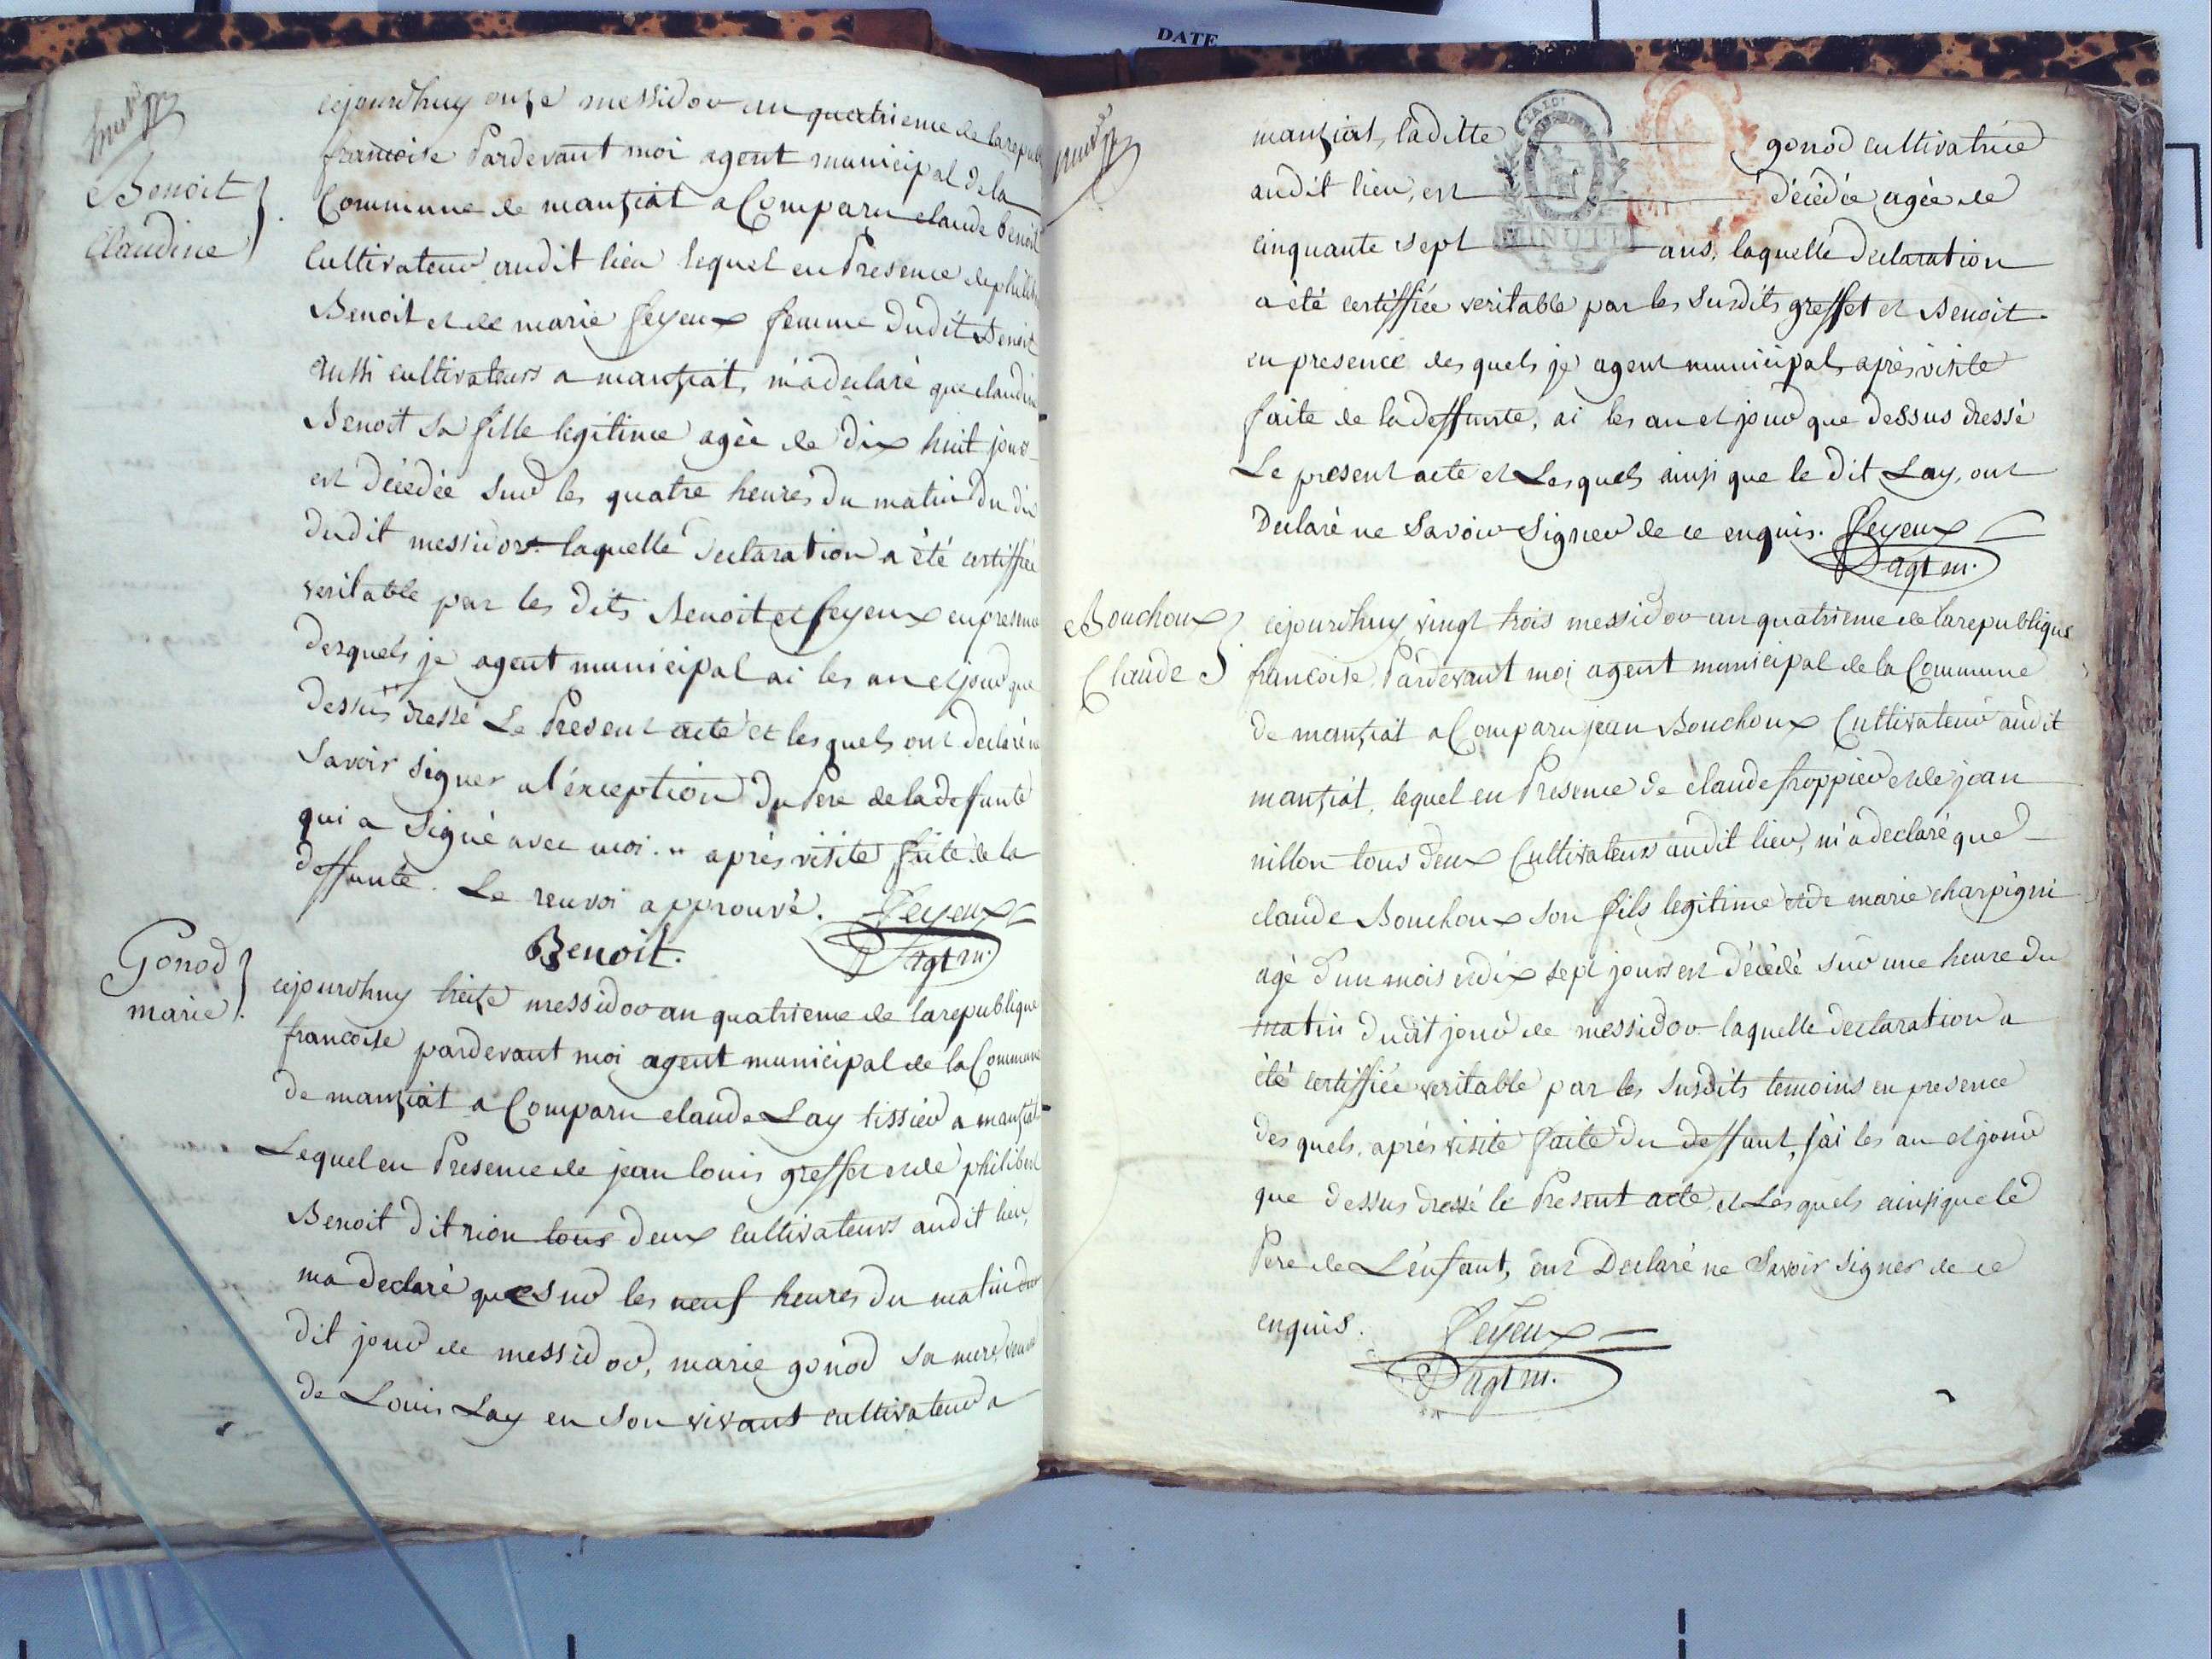 DATE
Benoit
Claudine
cejourdhuy onze messidor an quatrieme de la repub
francoise Pardevant moi agent municipal de la
Commune de manziat a Comparu claude benoit
Cultivateur audit lieu lequel en Presence de philib
Benoit et de marie feyeux femme dudit Benoit
aussi cultivateurs a manziat, m'a declaré que claudin
Benoit sa fille legitime agée de dix huit jour
est décédée sur les quatre heures du matin du dix
dudit messidor laquelle declaration a été certiffiée
veritable par les dits Benoit et feyeux en presence
desquels je agent municipal ai les an et jour que
dessus dressé Le Present acte et les quels ont declaré ne
Savoir signer a l'exception du Pere de la deffunte
qui a Signé avec moi. " après visite faite de la
deffunte. Le renvoi approuvé. feyeux
Benoit. agt m.
Gonod
marie
cejourdhuy treize messidor an quatrieme de la republique
francoise pardevant moi agent municipal de la Commune
de manziat a Comparu claude Lay tissier a manziat
Lequel en Presence de jean louis greffet et de philibert
Benoit dit rion tous deux cultivateurs audit lieu,
ma declaré que sur les neuf heures du matin du
dit jour de messidor, marie gonod sa mere, veuve
de Louis Lay en son vivant cultivateur a
manziat, laditte gonod cultivatrice
audit lieu, est décédée agée de
cinquante sept ans, laquelle declaration
a été certiffiée veritable par les susdits greffet et Benoit
en presence des quels je agent municipal, après visite
faite de la deffunte, ai les an et jour que dessus dressé
Le present acte et Lesquels ainsi que le dit Lay, ont
Declaré ne Savoir Signer de ce enquis. feyeux
agt m.
Bouchoux
Claude
cejourdhuy vingt trois messidor an quatrieme de la republique
francoise, Pardevant moi agent municipal de la Commune
de manziat a Comparu jean Bouchoux Cultivateur audit
manziat, lequel en Presence de claude froppier et de jean
nillon tous deux Cultivateurs audit lieu, m'a declaré que
claude Bouchoux son fils legitime et de marie charpigni
agé d'un mois et dix sept jours est décédé sur une heure du
matin dudit jour de messidor laquelle declaration a
été certiffiée veritable par les susdits temoins en presence
des quels, après visite faite du deffunt, j'ai les an et jour
que dessus dressé le Present acte, et Lesquels ainsi que le
Pere de L'enfant, ont Declaré ne Savoir signer de ce
enquis. feyeux
agt m.